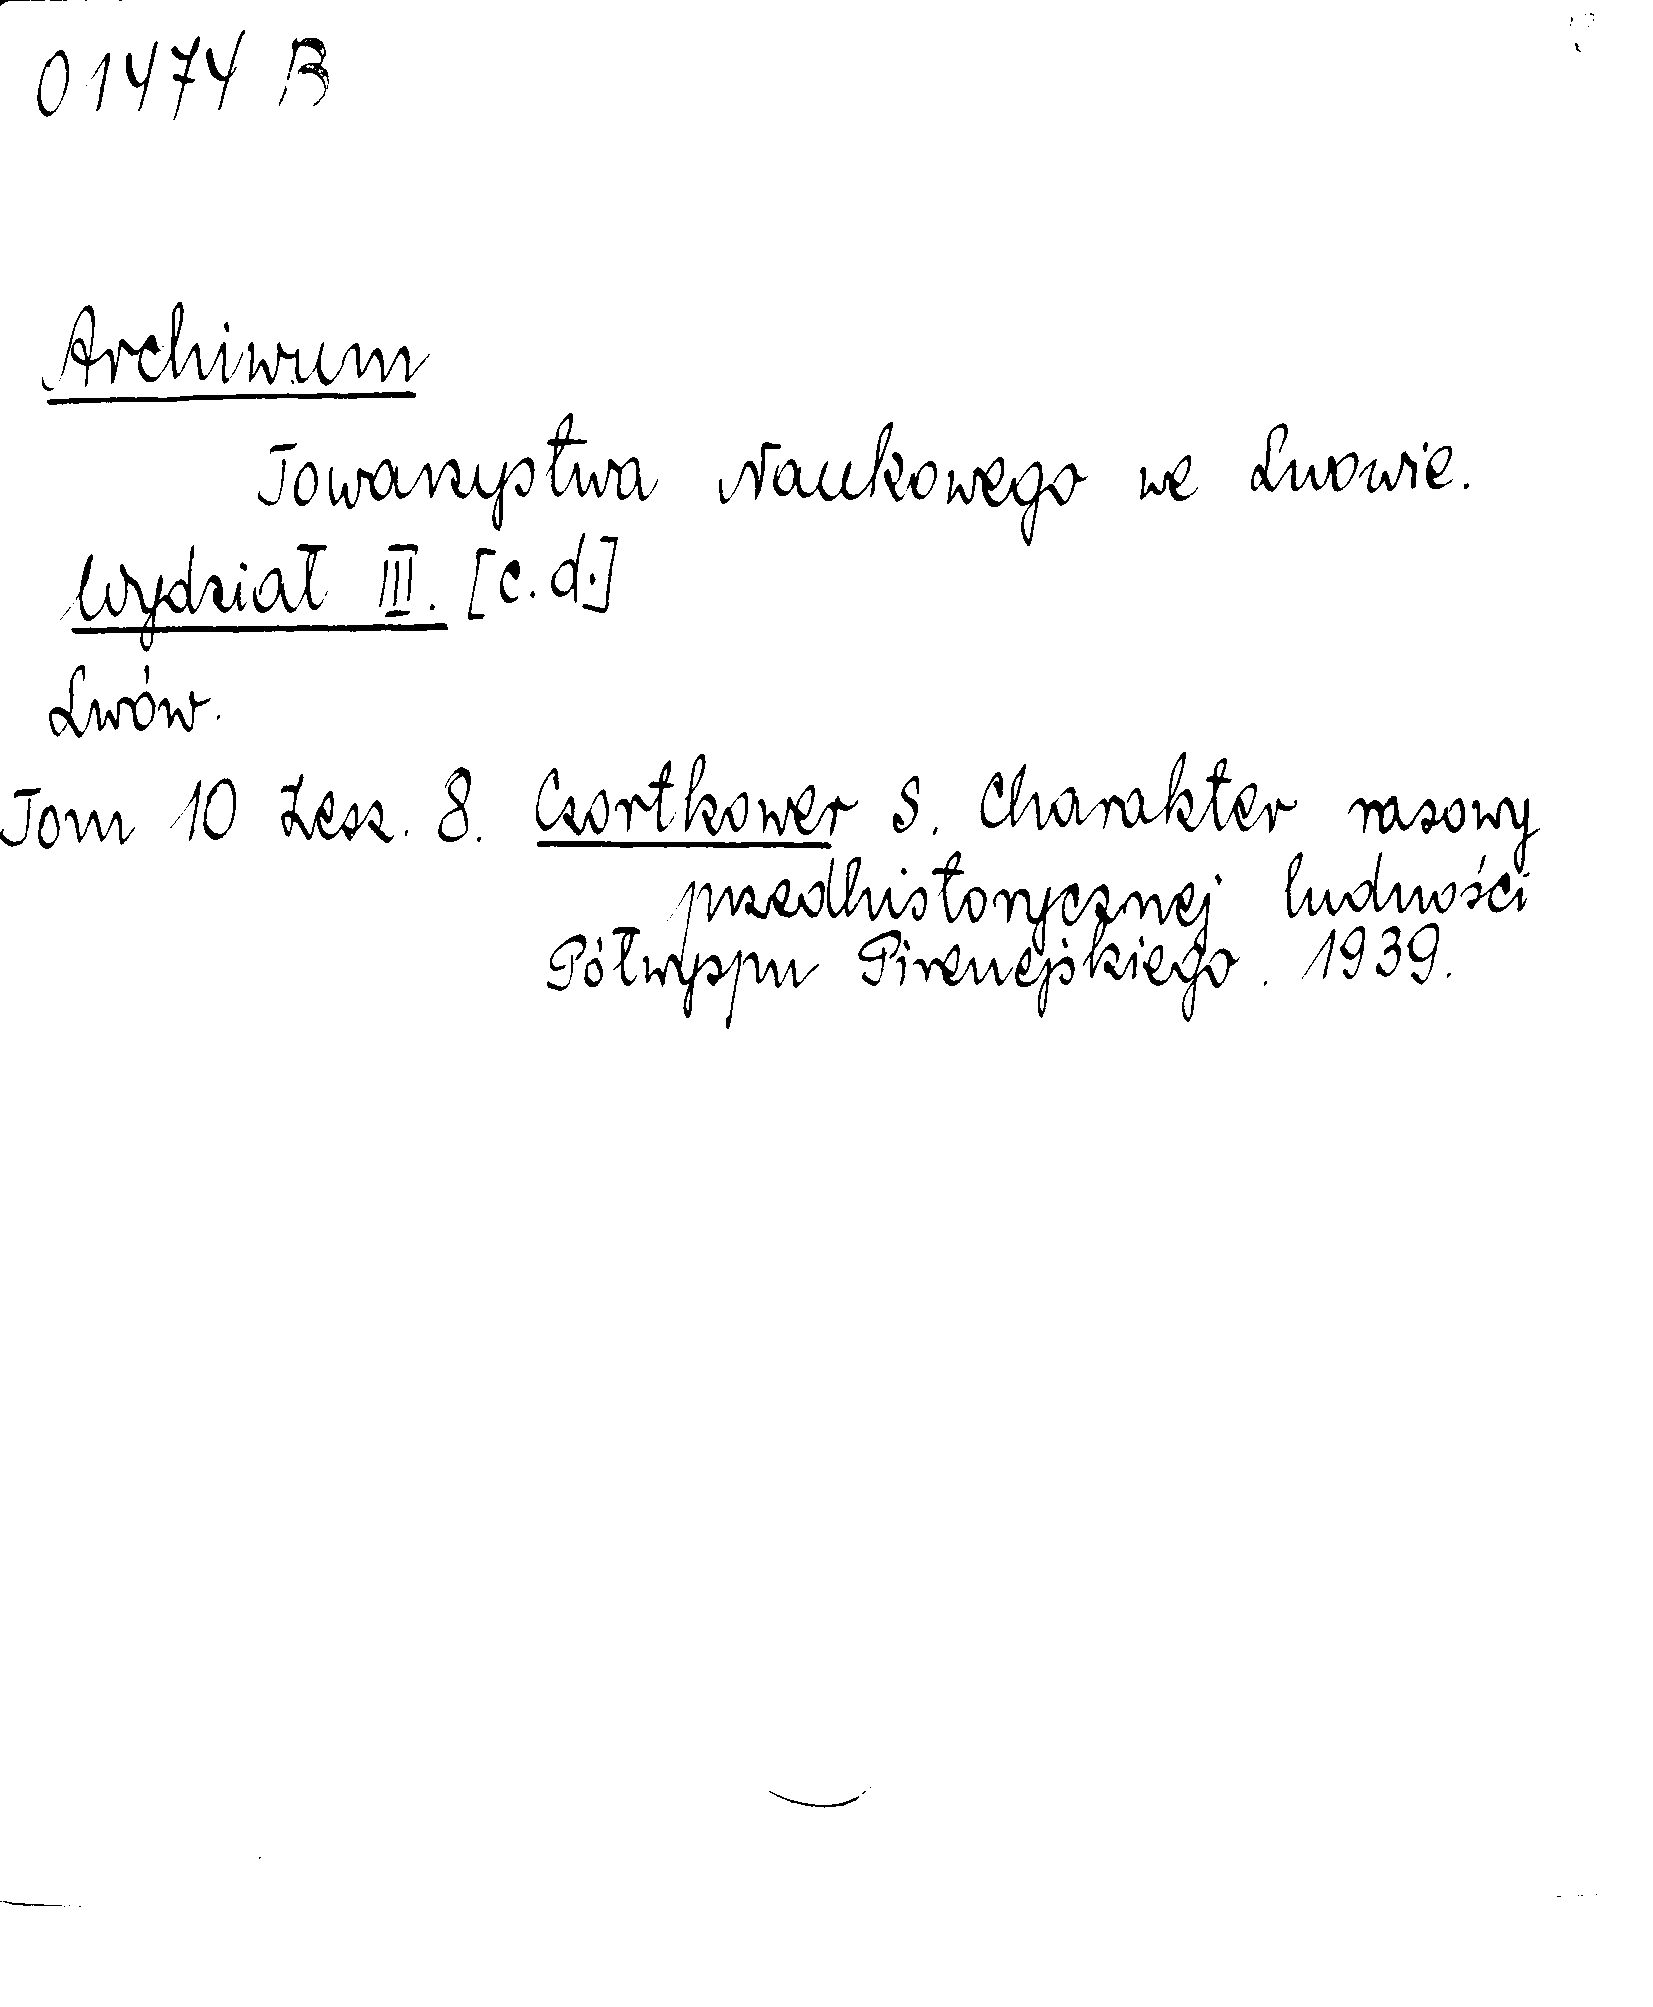 01474 B
Archiwum
Towarzystwa Naukowego we Lwowie.
Wydział III. [c.d.]
Lwów.
Tom 10 Zesz. 8. Czortkower S. Charakter rasowy
przedhistorycznej ludności
Półwyspu Pirenejskiego. 1939.